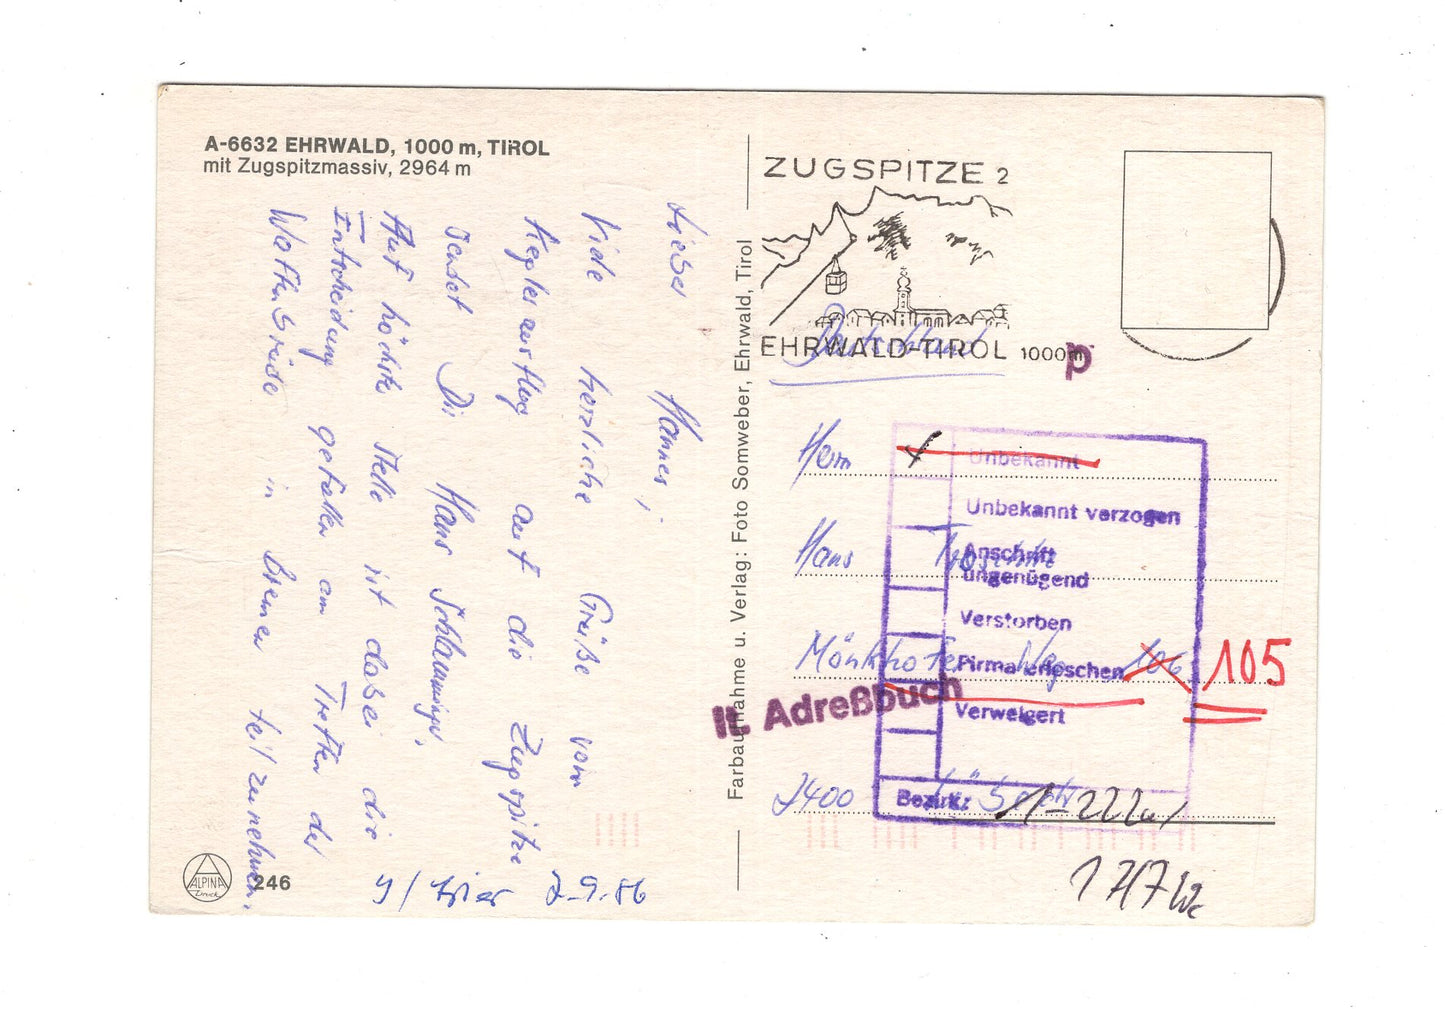 A-6632 EHRWALD, 1000 m, TIROL
mit Zugspitzmassiv, 2964 m
Lieber Hannes,
Viele herzliche Grüße vom
Keglerausflug auf die Zugspitze
sendet Dir Hans
Auf höchster Stelle ist dabei die
Entscheidung gefallen am Treffen der
in Bremen teilzunehmen.
2-9-86
ALPINA
Druck
246
Farbaufnahme u. Verlag: Foto Somweber, Ehrwald, Tirol
ZUGSPITZE 2
EHRWALD-TIROL 1000m
p
Deutschland
Herrn
Hans
Mönkhofer Weg 106
105
2400 Lübeck
Unbekannt
Unbekannt verzogen
Anschrift
ungenügend
Verstorben
Firma erloschen
Verweigert
Bezirk:
lt. Adreßbuch